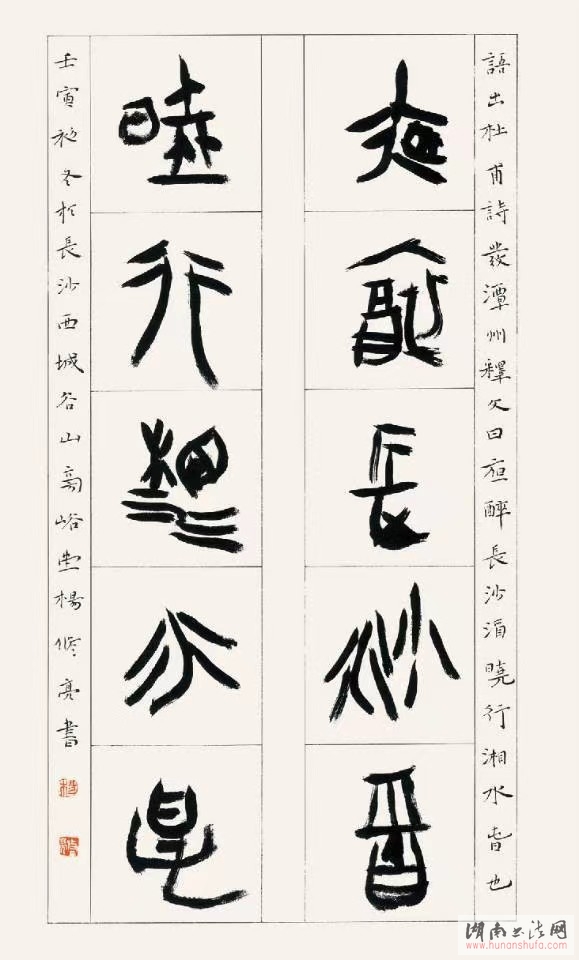 語出杜甫詩發潭州釋文曰夜醉長沙酒曉行湘水旾也
夜醉長沙酒
曉行湘水旾
壬寅初冬於長沙西城谷山高峪堂楊修亮書
湖南书法网
www.hunanshufa.com